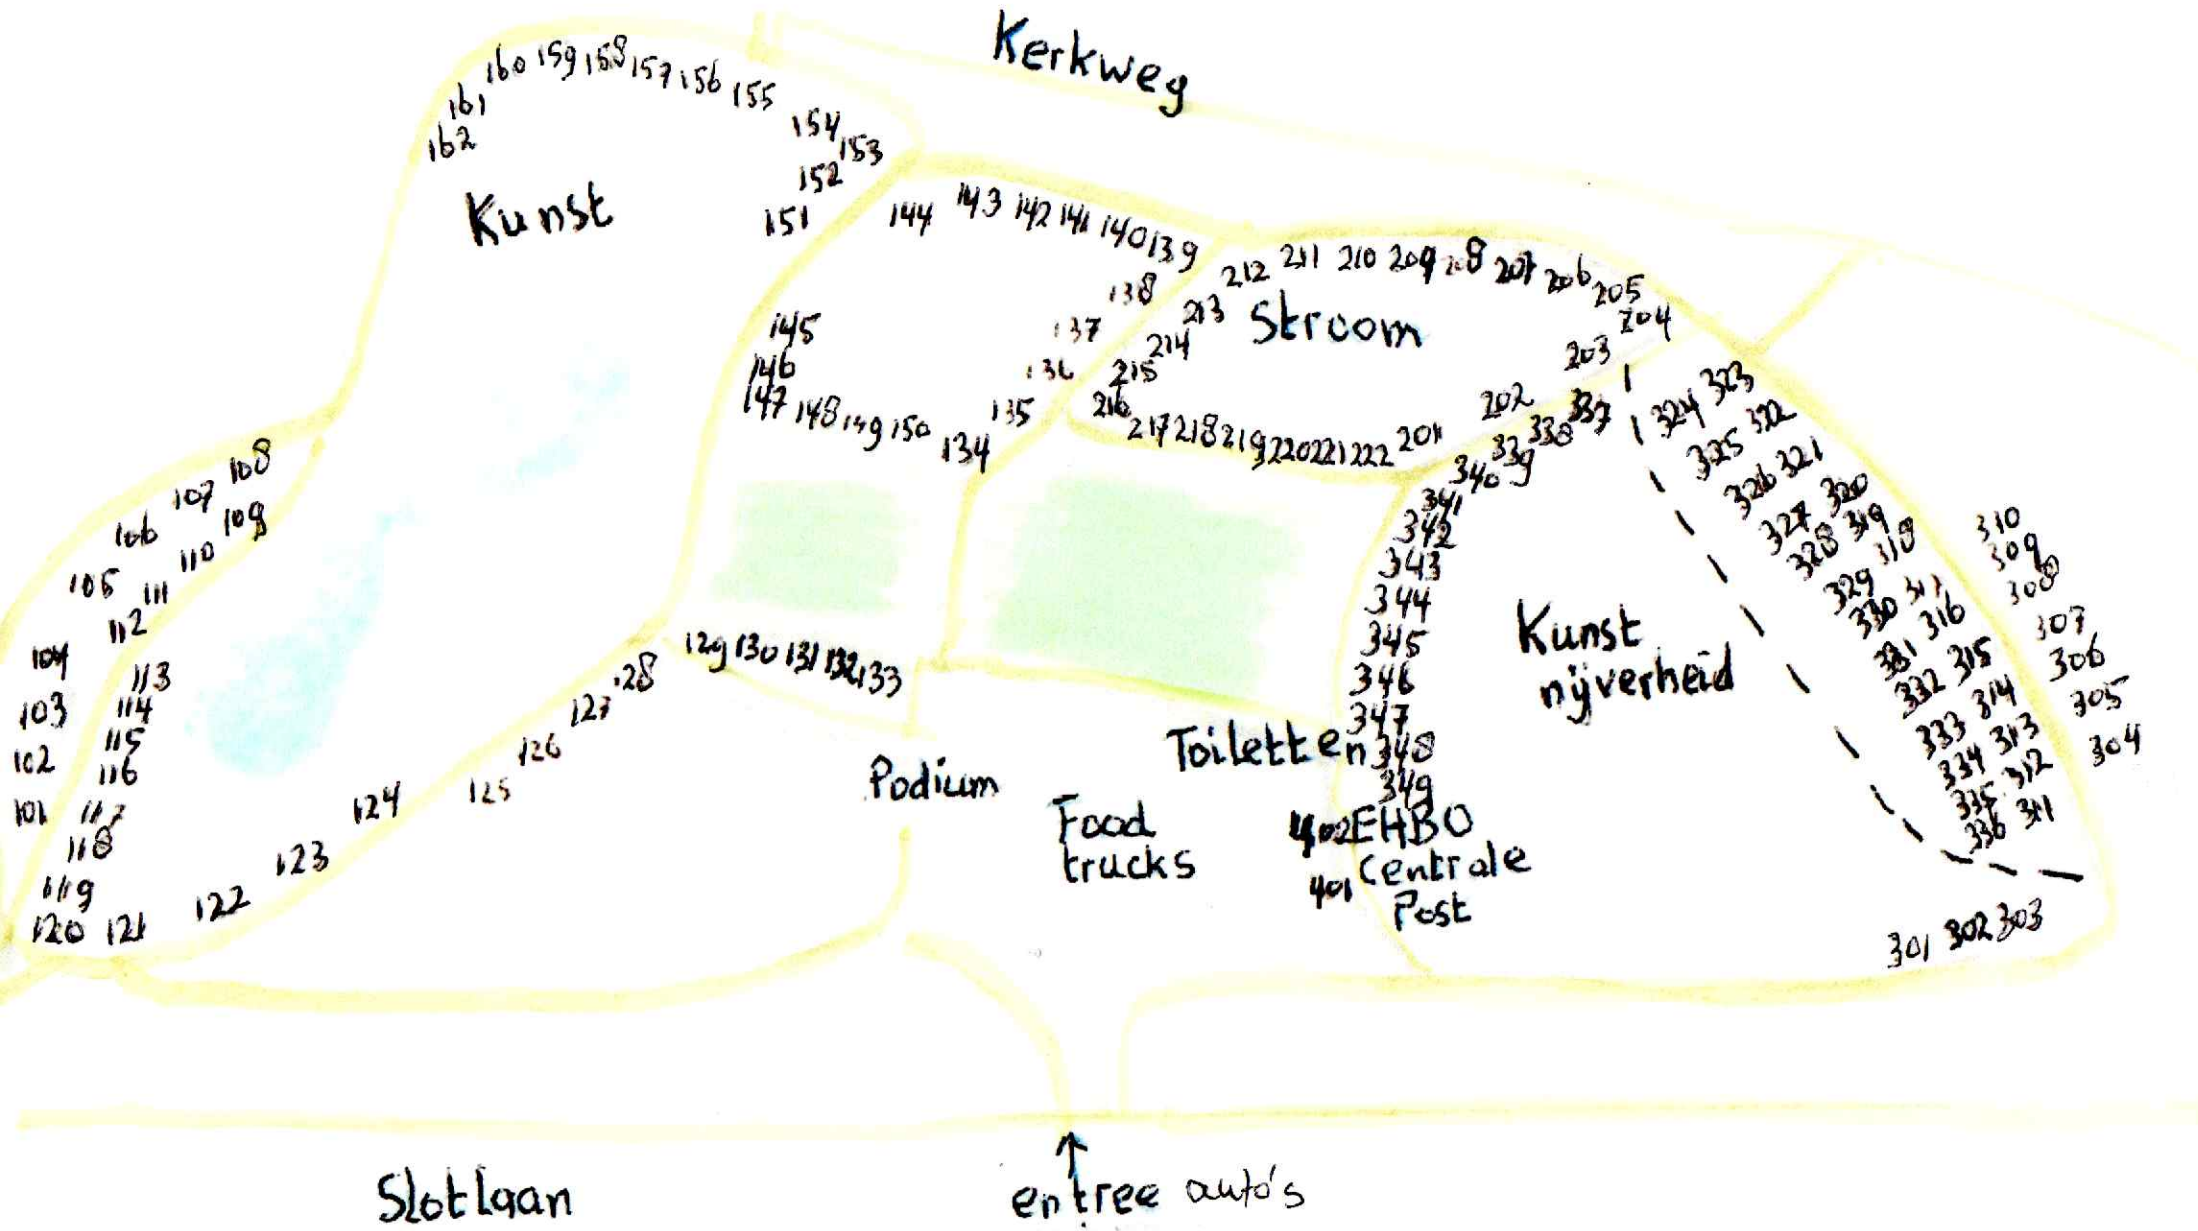 Kerkweg
160 159 158 157 156 155
161
162
154
153
152
151
Kunst
144 143 142 141 140 139
138
137
136
135
134
145
146
147 148 149 150
212 211 210 209 208 207 206 205
204
203
202
201
213
214
215
216
217 218 219 220 221 222
Stroom
108
107
106
105
104
103
102
101
109
110
111
112
113
114
115
116
117
118
119
120 121 122 123 124 125 126 127 128
129 130 131 132 133
337
338
339
340
341
342
343
344
345
346
347
348
349
324 323
325 322
326 321
327 320
328 319
318
329 317
330 316
331 315
332 314
333 313
334 312
335 311
336
310
309
308
307
306
305
304
Kunst
nijverheid
Toiletten
Podium
Food
trucks
402 EHBO
Centrale
401
Post
301 302 303
Slotlaan
entree auto's